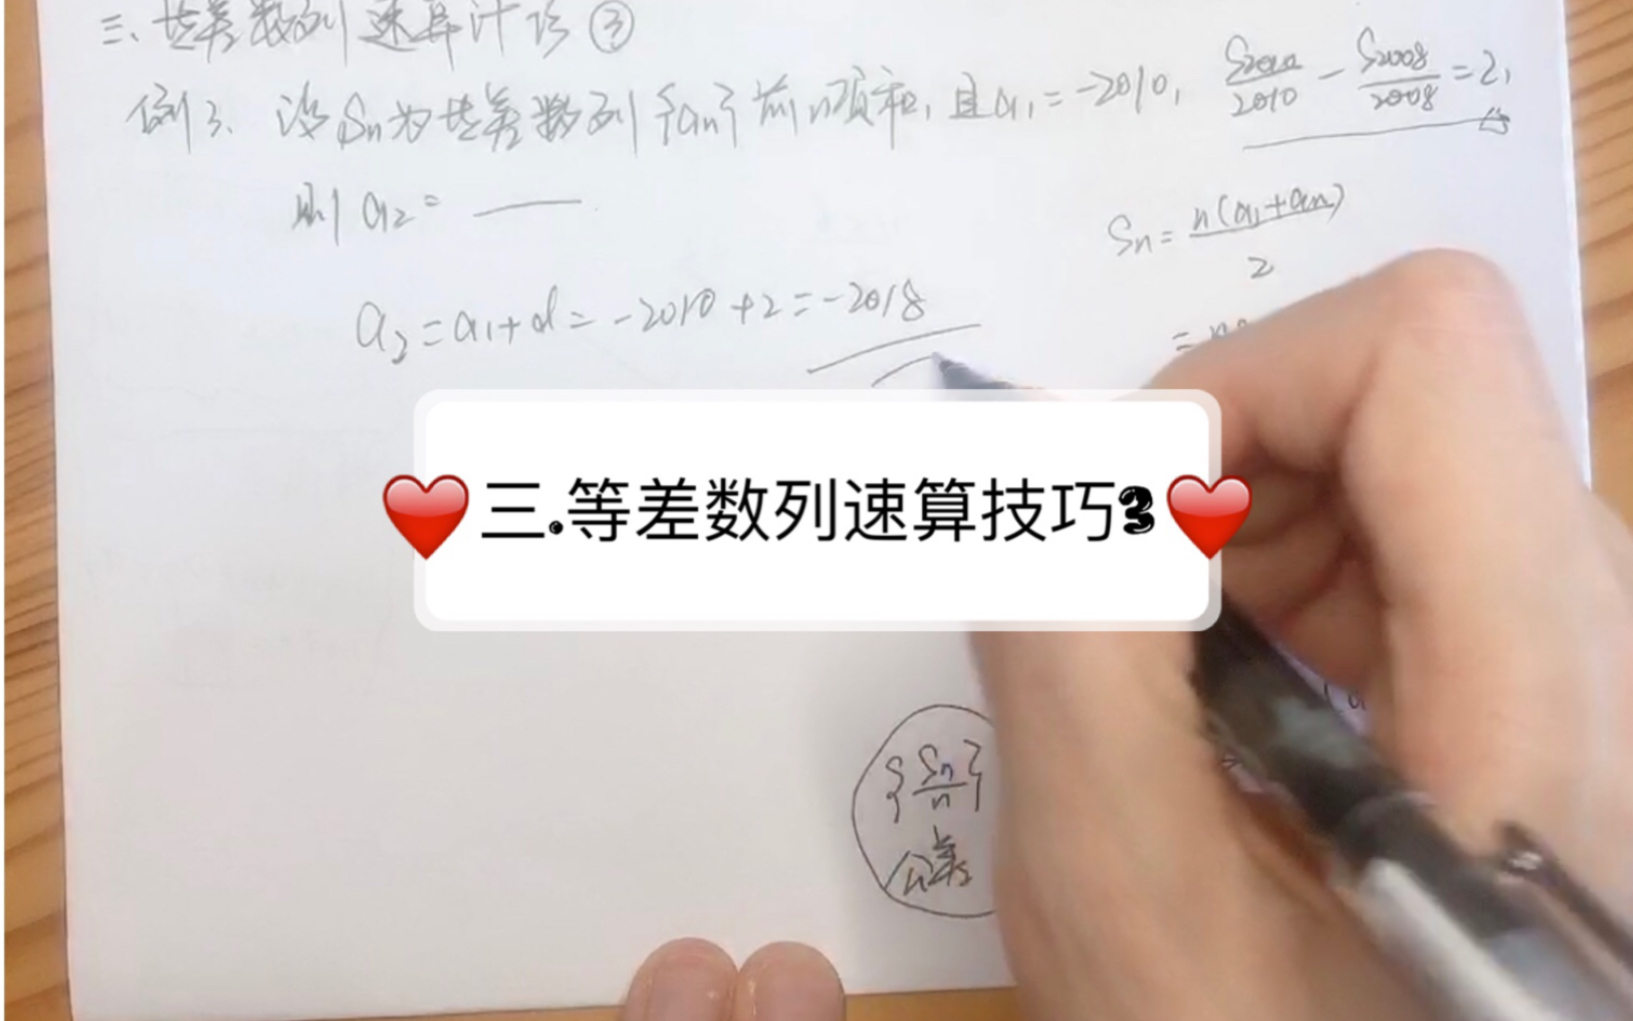 三、等差数列速算技巧③
例3、设Sn为等差数列{an}前n项和,且a1=-2010, S2010/2010 - S2008/2008 = 2,
则a2= ——
Sn= n(a1+an)/2
a2=a1+d=-2010+2=-2018
三.等差数列速算技巧3
{Sn/n}
公差